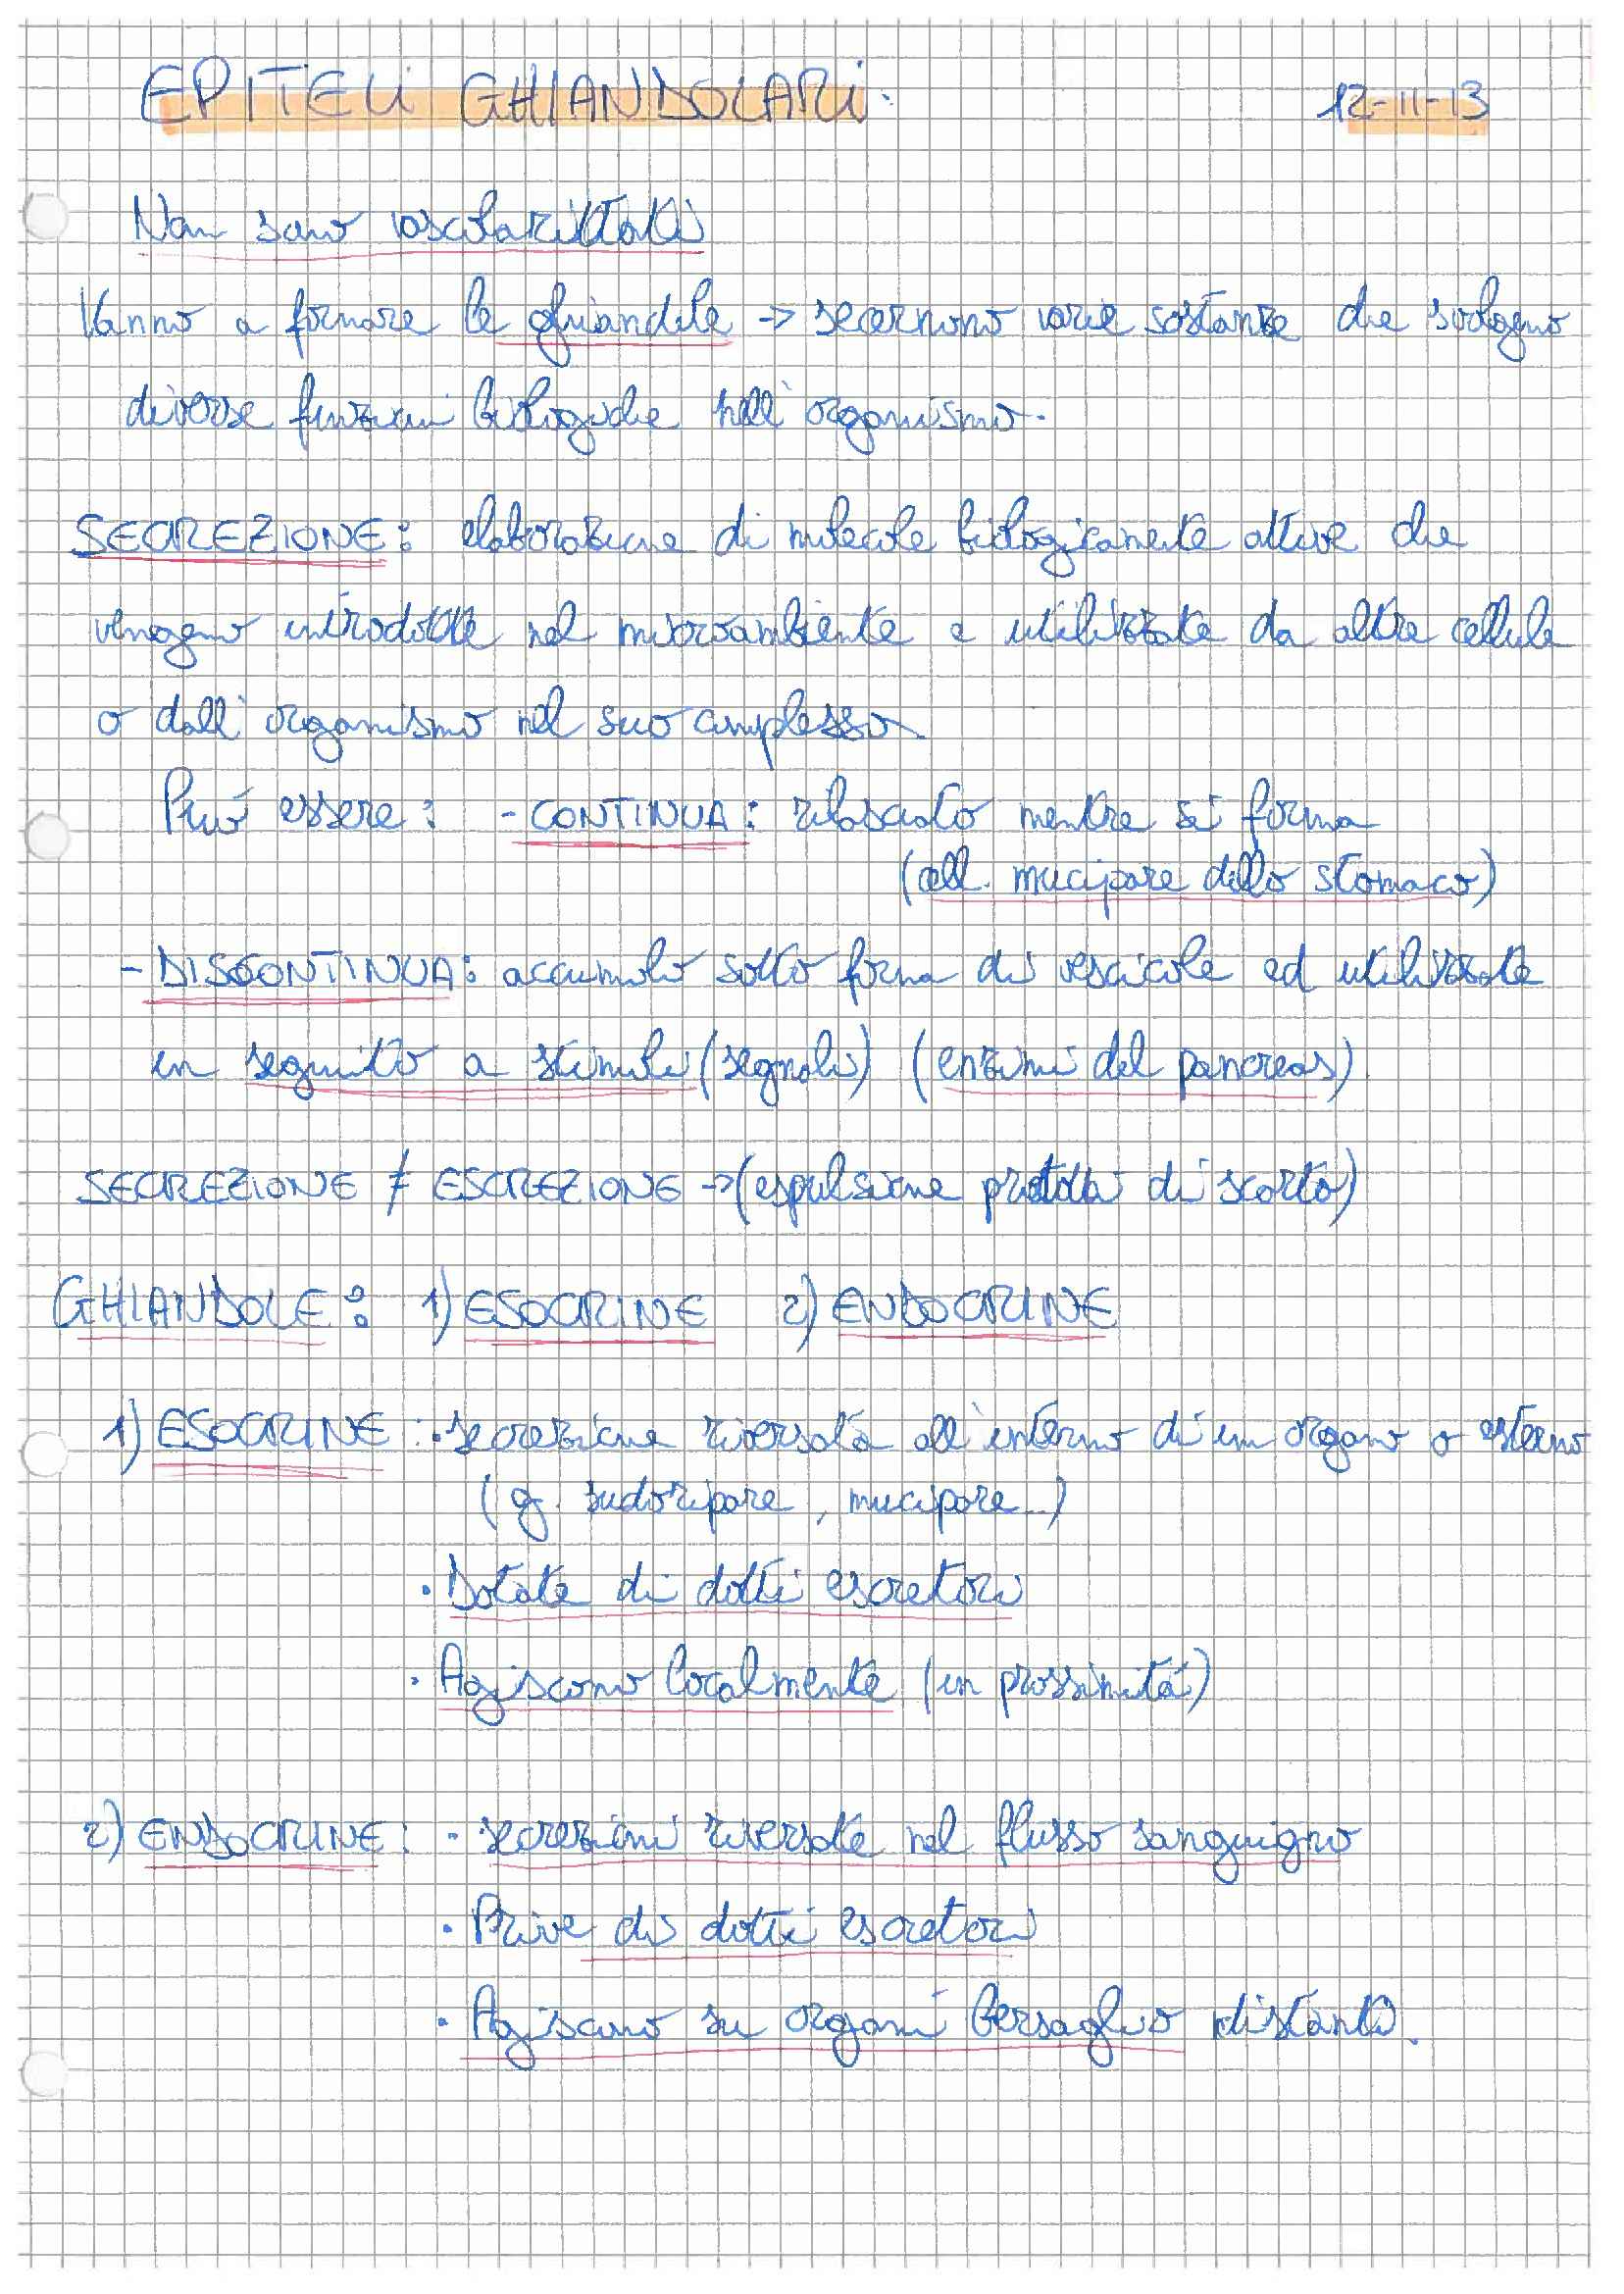 EPITELI GHIANDOLARI. 12-11-13
Non sono vascolarizzati
Vanno a formare le ghiandole -> secernono varie sostanze che svolgono
diverse funzioni biologiche nell'organismo.
SECREZIONE: elaborazione di molecole biologicamente attive che
vengono introdotte nel microambiente e utilizzate da altre cellule
o dall'organismo nel suo complesso.
Può essere: - CONTINUA: rilasciato mentre si forma
(cell. mucipare dello stomaco)
- DISCONTINUA: accumulo sotto forma di vescicole ed utilizzate
in seguito a stimoli (segnali) (enzimi del pancreas).
SECREZIONE ≠ ESCREZIONE -> (espulsione prodotti di scarto)
GHIANDOLE: 1) ESOCRINE 2) ENDOCRINE
1) ESOCRINE: • secrezione riversata all'interno di un organo o esterno
(g. sudoripare, mucipare...)
• Dotate di dotti escretori
• Agiscono localmente (in prossimità)
2) ENDOCRINE: • secrezioni riversate nel flusso sanguigno
• Prive di dotti escretori
• Agiscono su organi bersaglio distanti.